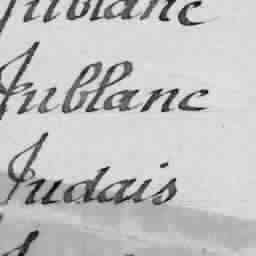 Jublanc
Jublanc
Judais